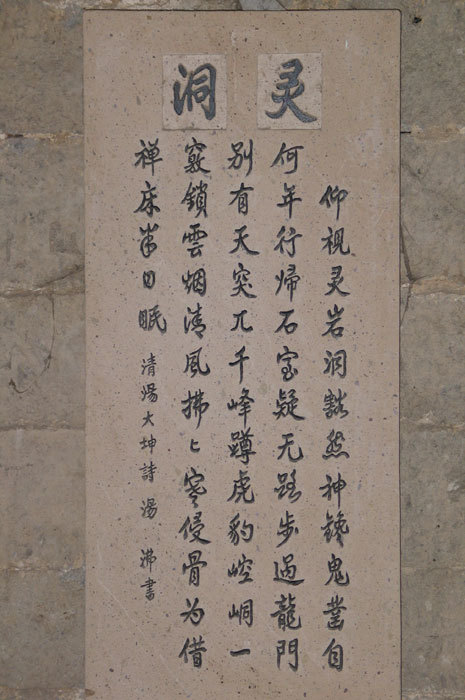 灵洞
仰視灵岩洞豁然神鑱鬼凿自
何年行帰石室疑无路步過龍門
别有天突兀千峰蹲虎豹崆峒一
竅鎖雲烟清風拂〻寒侵骨为借
禅床半日眠 清湯大坤詩 湯沸書